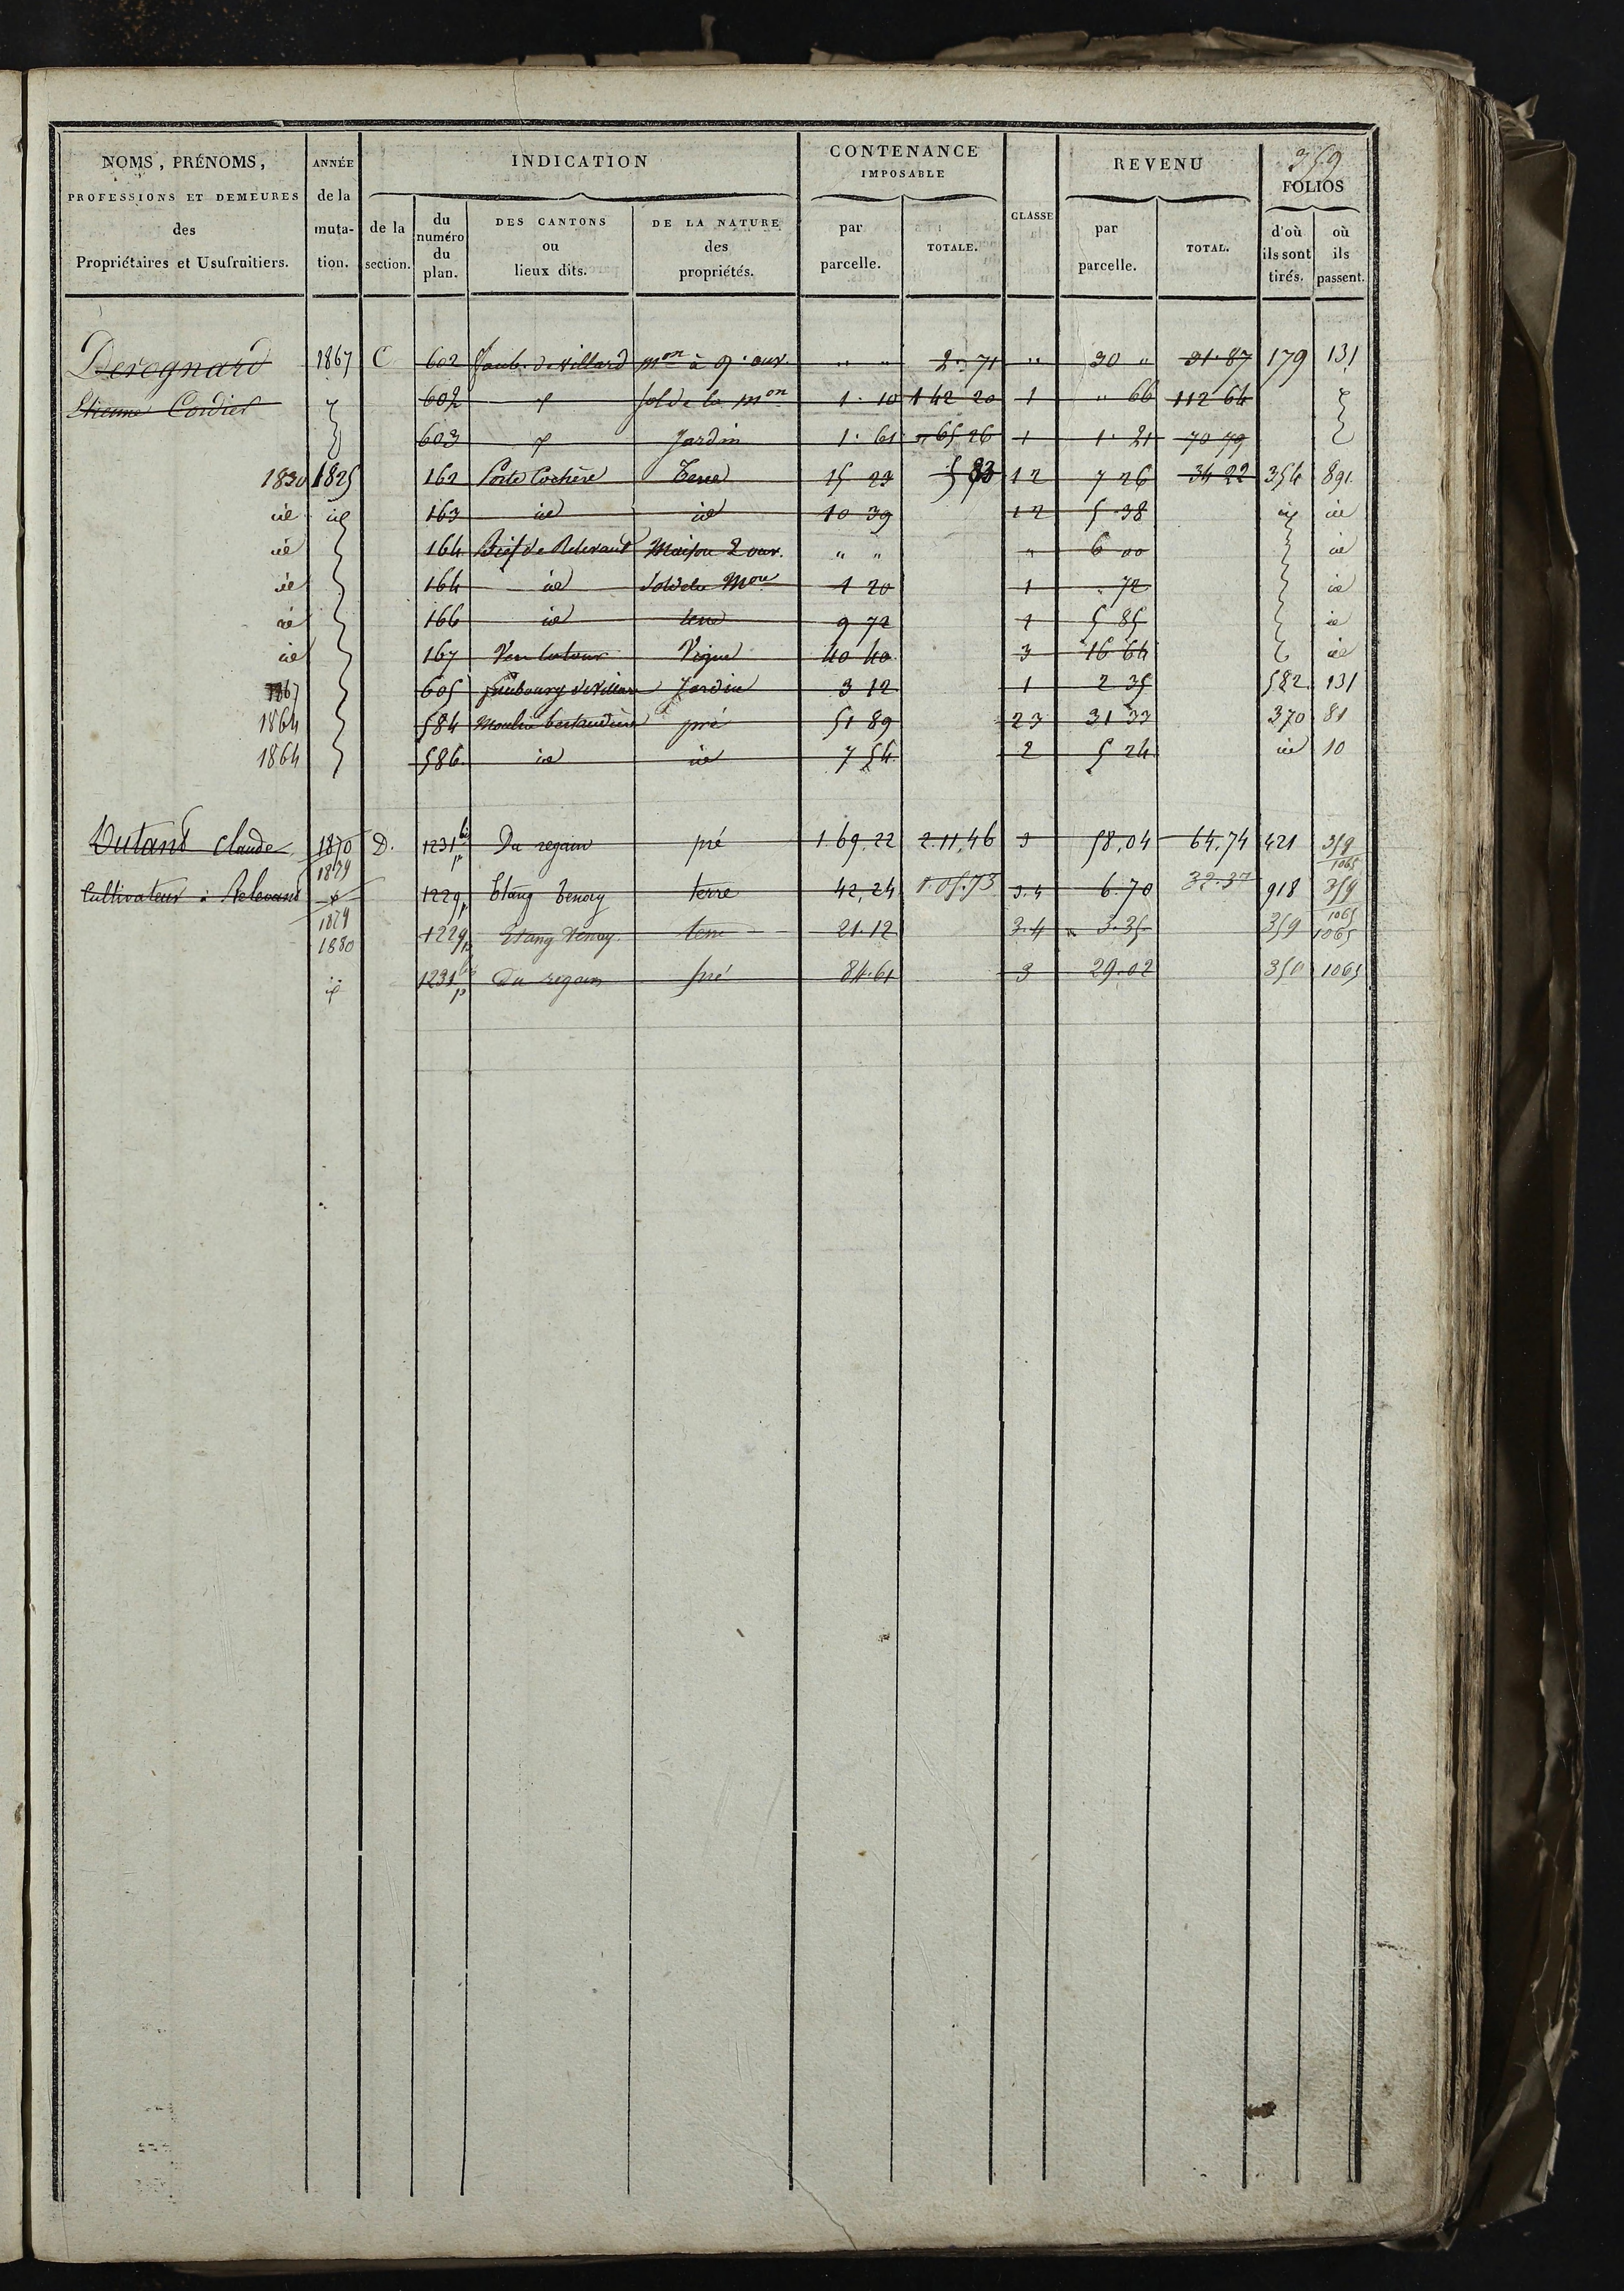 359
NOMS, PRÉNOMS, PROFESSIONS ET DEMEURES des Propriétaires et Usufruitiers. ANNÉE de la muta-tion. INDICATION de la section. du numéro du plan. DES CANTONS ou lieux dits. DE LA NATURE des propriétés. CONTENANCE IMPOSABLE par parcelle. TOTALE. CLASSE REVENU par parcelle. TOTAL. FOLIOS d'où ils sont tirés. où ils passent.
Derognard 1867 C 602 Faub. de Villard mon à 9 ouv. " " 2 71 " 30 " 31 87 179 131
Etienne Cordier 602 sol de la mon 1 10 1 42 20 1 " 66 112 64
603 Jardin 1 61 65 26 1 1 21 70 79
1830 1825 162 Porte Cochère Terre 15 23 5 83 1 2 7 26 34 22 354 891
id id 163 id id 10 39 1 2 5 38 id id
id 164 Bief de Relevant Maison 2 ouv. " " " 6 00 id
id 164 id Sol de la Mon 1 20 1 72 id
id 166 id terre 9 72 1 5 85 id
id 167 Vigne 40 40 3 16 64 id
1867 605 faubourg de Villars Jardin 3 12 1 2 35 582 131
1864 584 Moulin pré 51 89 2 3 31 33 370 81
1864 586 id id 7 54 2 5 24 id 10
Dutant Claude 1870 D. 1231 bis p Du regain pré 1.69.22 2.11.46 3 58,04 64,74 421 359
1879 1065
Cultivateur à Relevant 1229 p Etang terre 42,24 1.05.73 3.4 6.70 32.37 918 359
1879 1065
1880 1229 p Etang terre 21.12 3.4 3.35 359 1065
id 1231 bis p Du regain pré 84.61 3 29.02 1065